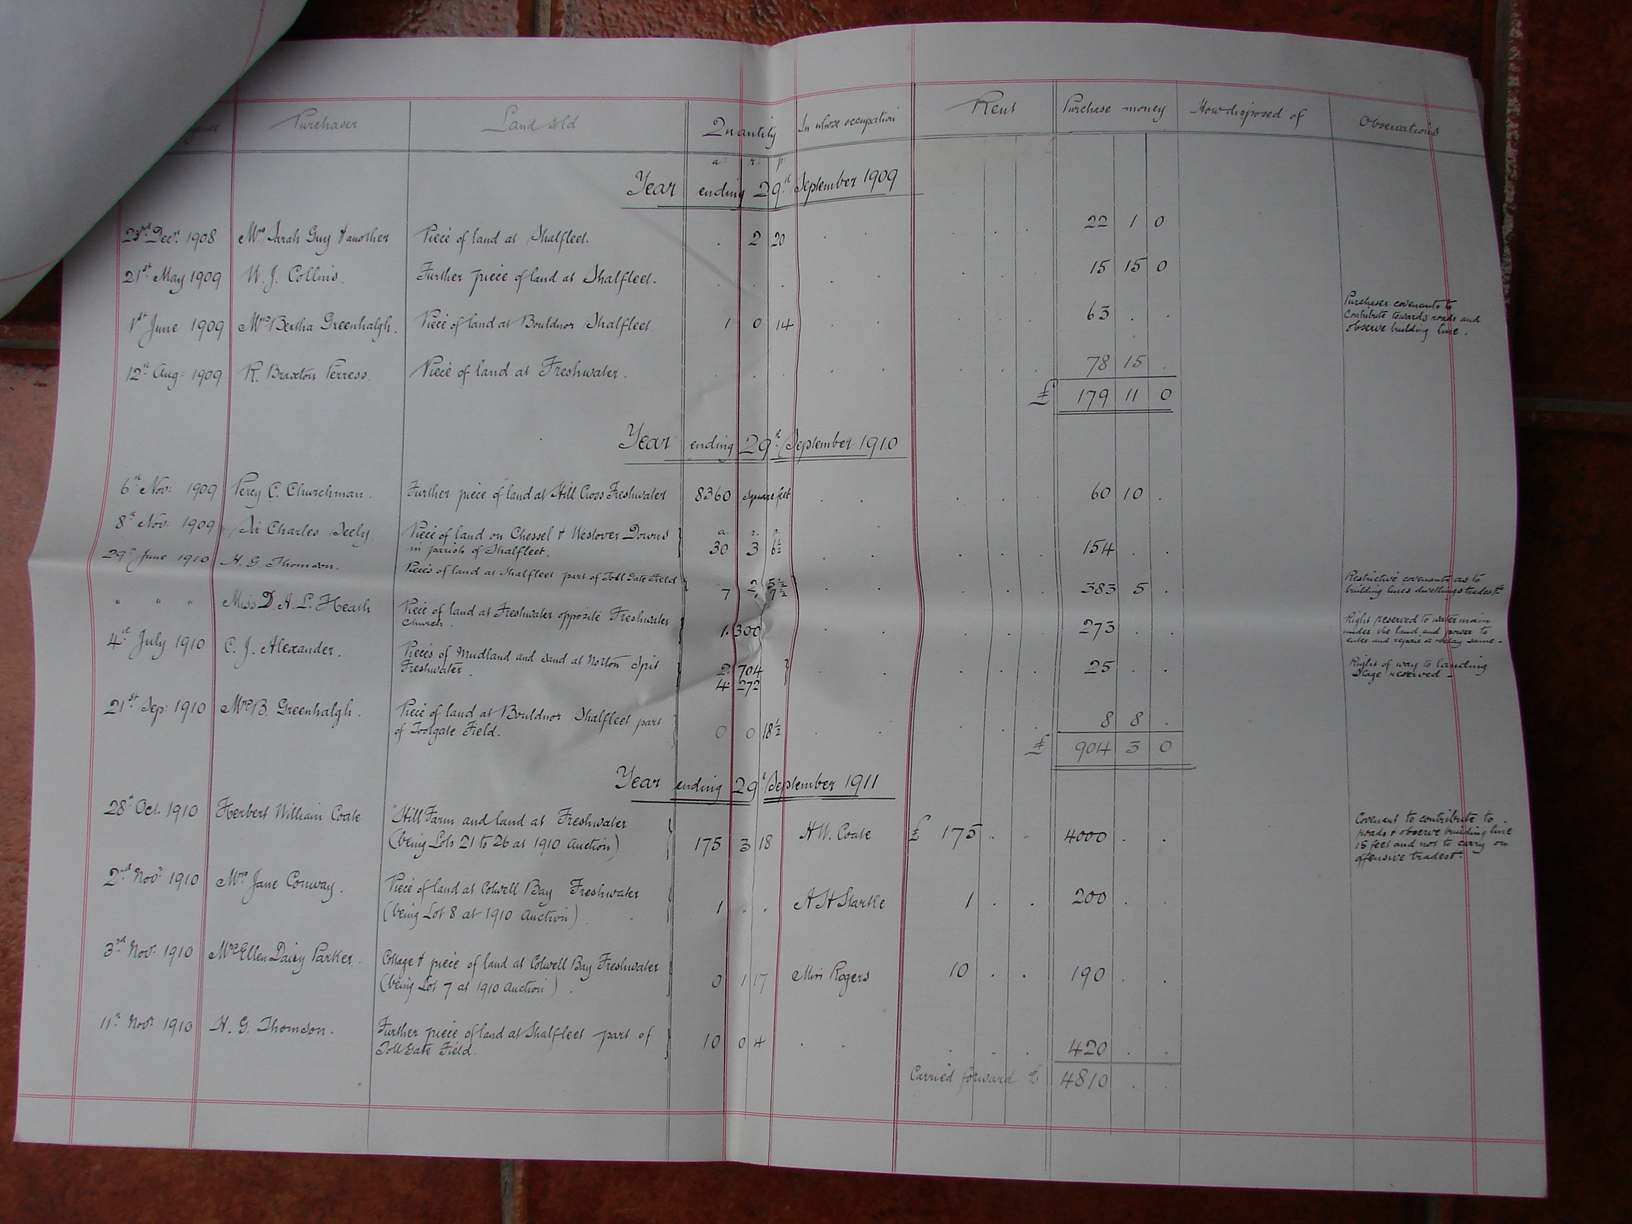 Purchaser Land sold Quantity In whose occupation Rent Purchase money How disposed of Observations
a. r. p.
Year ending 29th September 1909
23rd Decr. 1908 Mrs Sarah Guy & another Piece of land at Shalfleet. . 2 20 22 1 0
21st May 1909 W. J. Collins. Further piece of land at Shalfleet. 15 15 0
1st June 1909 Mrs Bertha Greenhalgh. Piece of land at Bouldnor Shalfleet 1 0 14 63 . . Purchaser covenants to
contribute towards roads and
observe building line.
12th Aug: 1909 R. Braxton Perress. Piece of land at Freshwater. 78 15 .
£ 179 11 0
Year ending 29th September 1910
6th Nov: 1909 Percy C. Churchman. Further piece of land at Hill Cross Freshwater 8360 square feet 60 10 .
8th Nov: 1909 Sir Charles Seely Piece of land on Chessel & Westover Downs
in parish of Shalfleet. a. r. p.
30 3 6½ 154 . .
29th June 1910 H. G. Thomson. Pieces of land at Shalfleet part of Toll Gate Field 7 2 383 5 . Restrictive covenants as to
building lines dwellings trades &c
" " " Miss D. A. L. Heash Piece of land at Freshwater opposite Freshwater
church. 1. 300 273 . . Right reserved to water main
under the land and power to
enter and repair or relay same.
4th July 1910 C. J. Alexander. Pieces of Mudland and sand at Norton Spit
Freshwater. 2. 704
4. 272 25 . . Right of way to landing
stage reserved.
21st Sep: 1910 Mrs B. Greenhalgh. Piece of land at Bouldnor Shalfleet part
of Toolgate Field. 0 0 18½ 8 8 .
£ 904 3 0
Year ending 29th September 1911
28th Oct. 1910 Herbert William Coate Hill Farm and land at Freshwater
(being Lots 21 to 26 at 1910 Auction) 175 3 18 H W. Coate £ 175 . . 4000 . . Covenant to contribute to
roads & observe building line
15 feet and not to carry on
offensive trades &c.
2nd Novr. 1910 Mrs Jane Conway. Piece of land at Colwell Bay Freshwater
(being Lot 8 at 1910 Auction). 1 . . A H Starke 1 . . 200 . .
3rd Novr. 1910 Mrs Ellen Daisy Parker. Cottage & piece of land at Colwell Bay Freshwater
(being Lot 7 at 1910 Auction). 0 1 17 Miss Rogers 10 . . 190 . .
11th Novr. 1910 H. G. Thomson. Further piece of land at Shalfleet part of
Toll Gate Field. 10 0 4 420 . .
Carried forward £ 4810 . .